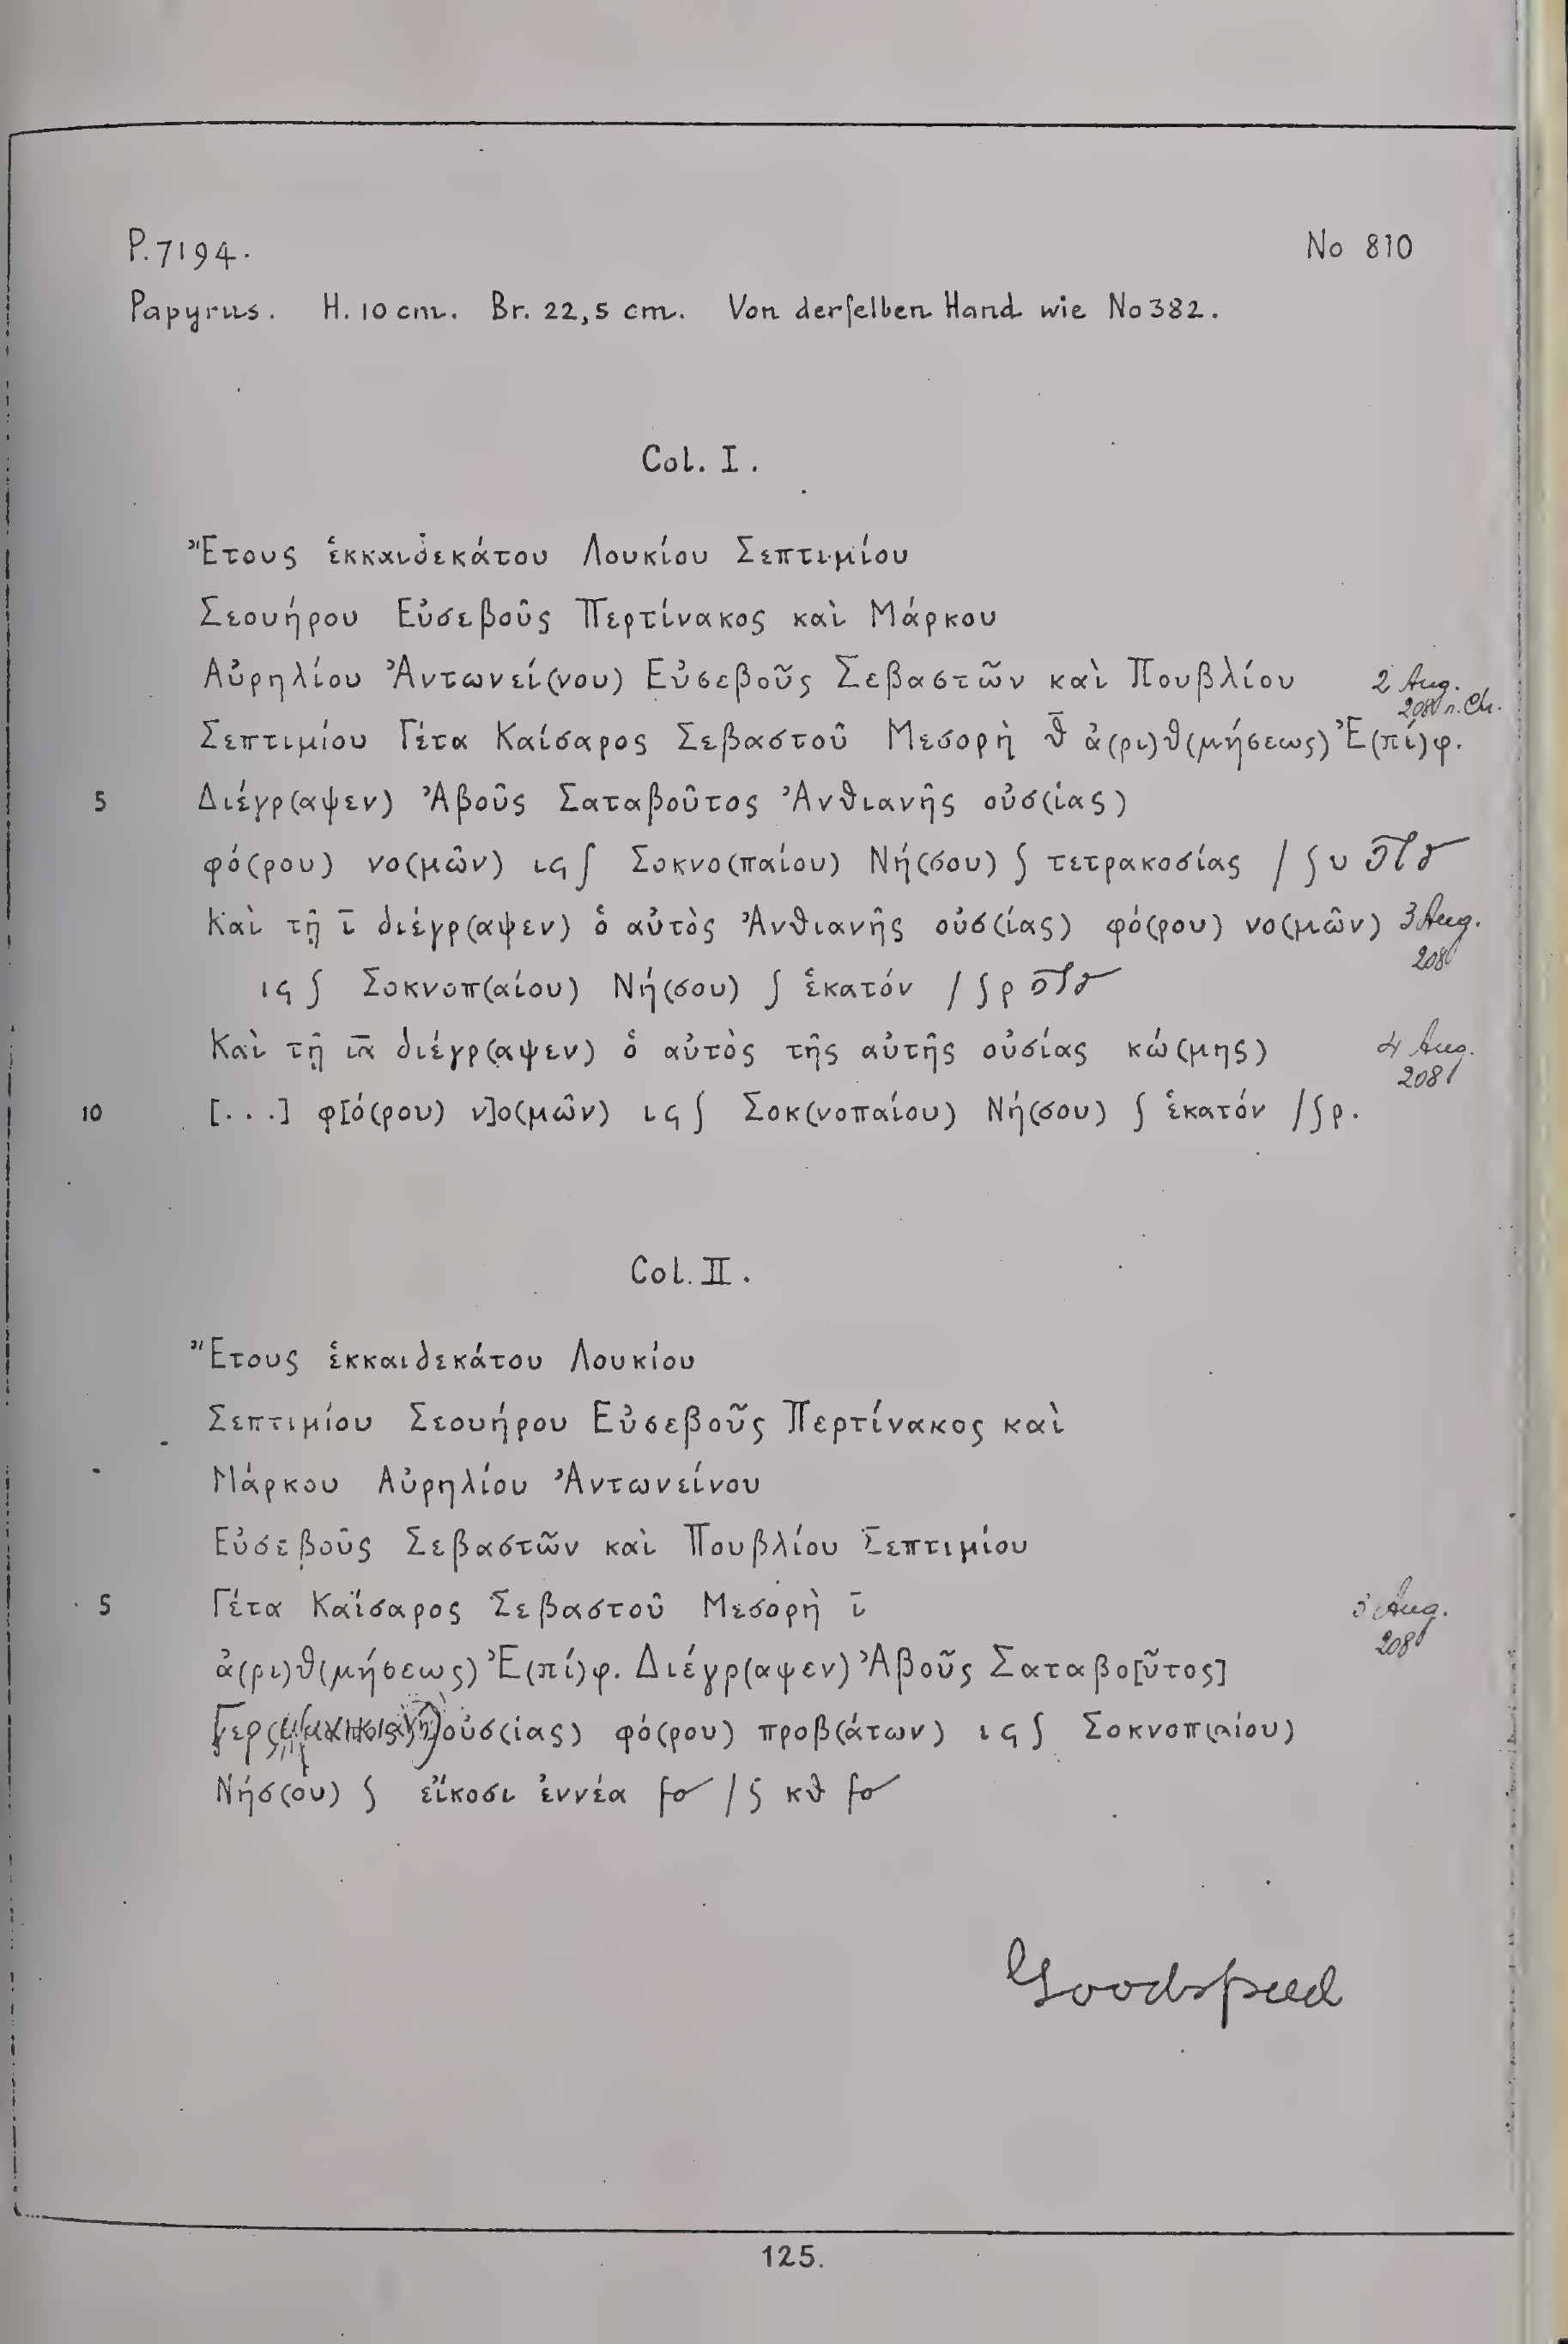 P. 7194. No 810
Papyrus. H. 10 cm. Br. 22,5 cm. Von derselben Hand wie No 382.
Col. I.
Ἔτους ἑκκαιδεκάτου Λουκίου Σεπτιμίου
Σεουήρου Εὐσεβοῦς Περτίνακος καὶ Μάρκου
Αὐρηλίου Ἀντωνεί(νου) Εὐσεβοῦς Σεβαστῶν καὶ Πουβλίου 2 Aug.
208 n. Ch.
Σεπτιμίου Γέτα Καίσαρος Σεβαστοῦ Μεσορὴ θ̄ ἀ(ρι)θ(μήσεως) Ἐ(πί)φ.
5 Διέγρ(αψεν) Ἀβοῦς Σαταβοῦτος Ἀνθιανῆς οὐσ(ίας)
φό(ρου) νο(μῶν) ιϛ ʃ Σοκνο(παίου) Νή(σου) ʃ τετρακοσίας / ʃ υ
Καὶ τῇ ῑ διέγρ(αψεν) ὁ αὐτὸς Ἀνθιανῆς οὐσ(ίας) φό(ρου) νο(μῶν) 3 Aug.
208
ιϛ ʃ Σοκνοπ(αίου) Νή(σου) ʃ ἑκατόν / ʃ ρ
Καὶ τῇ ῑᾱ διέγρ(αψεν) ὁ αὐτὸς τῆς αὐτῆς οὐσίας κώ(μης) 4 Aug.
208
10 [. . .] φ[ό(ρου) ν]ο(μῶν) ιϛ ʃ Σοκ(νοπαίου) Νή(σου) ʃ ἑκατόν / ʃ ρ.
Col. II.
Ἔτους ἑκκαιδεκάτου Λουκίου
Σεπτιμίου Σεουήρου Εὐσεβοῦς Περτίνακος καὶ
Μάρκου Αὐρηλίου Ἀντωνείνου
Εὐσεβοῦς Σεβαστῶν καὶ Πουβλίου Σεπτιμίου
5 Γέτα Καίσαρος Σεβαστοῦ Μεσορὴ ῑ 3 Aug.
208
ἀ(ρι)θ(μήσεως) Ἐ(πί)φ. Διέγρ(αψεν) Ἀβοῦς Σαταβο[ῦτος]
οὐσ(ίας) φό(ρου) προβ(άτων) ιϛ ʃ Σοκνοπ(αίου)
Νήσ(ου) ʃ εἴκοσι ἐννέα / ʃ κθ
Goodspeed
125.